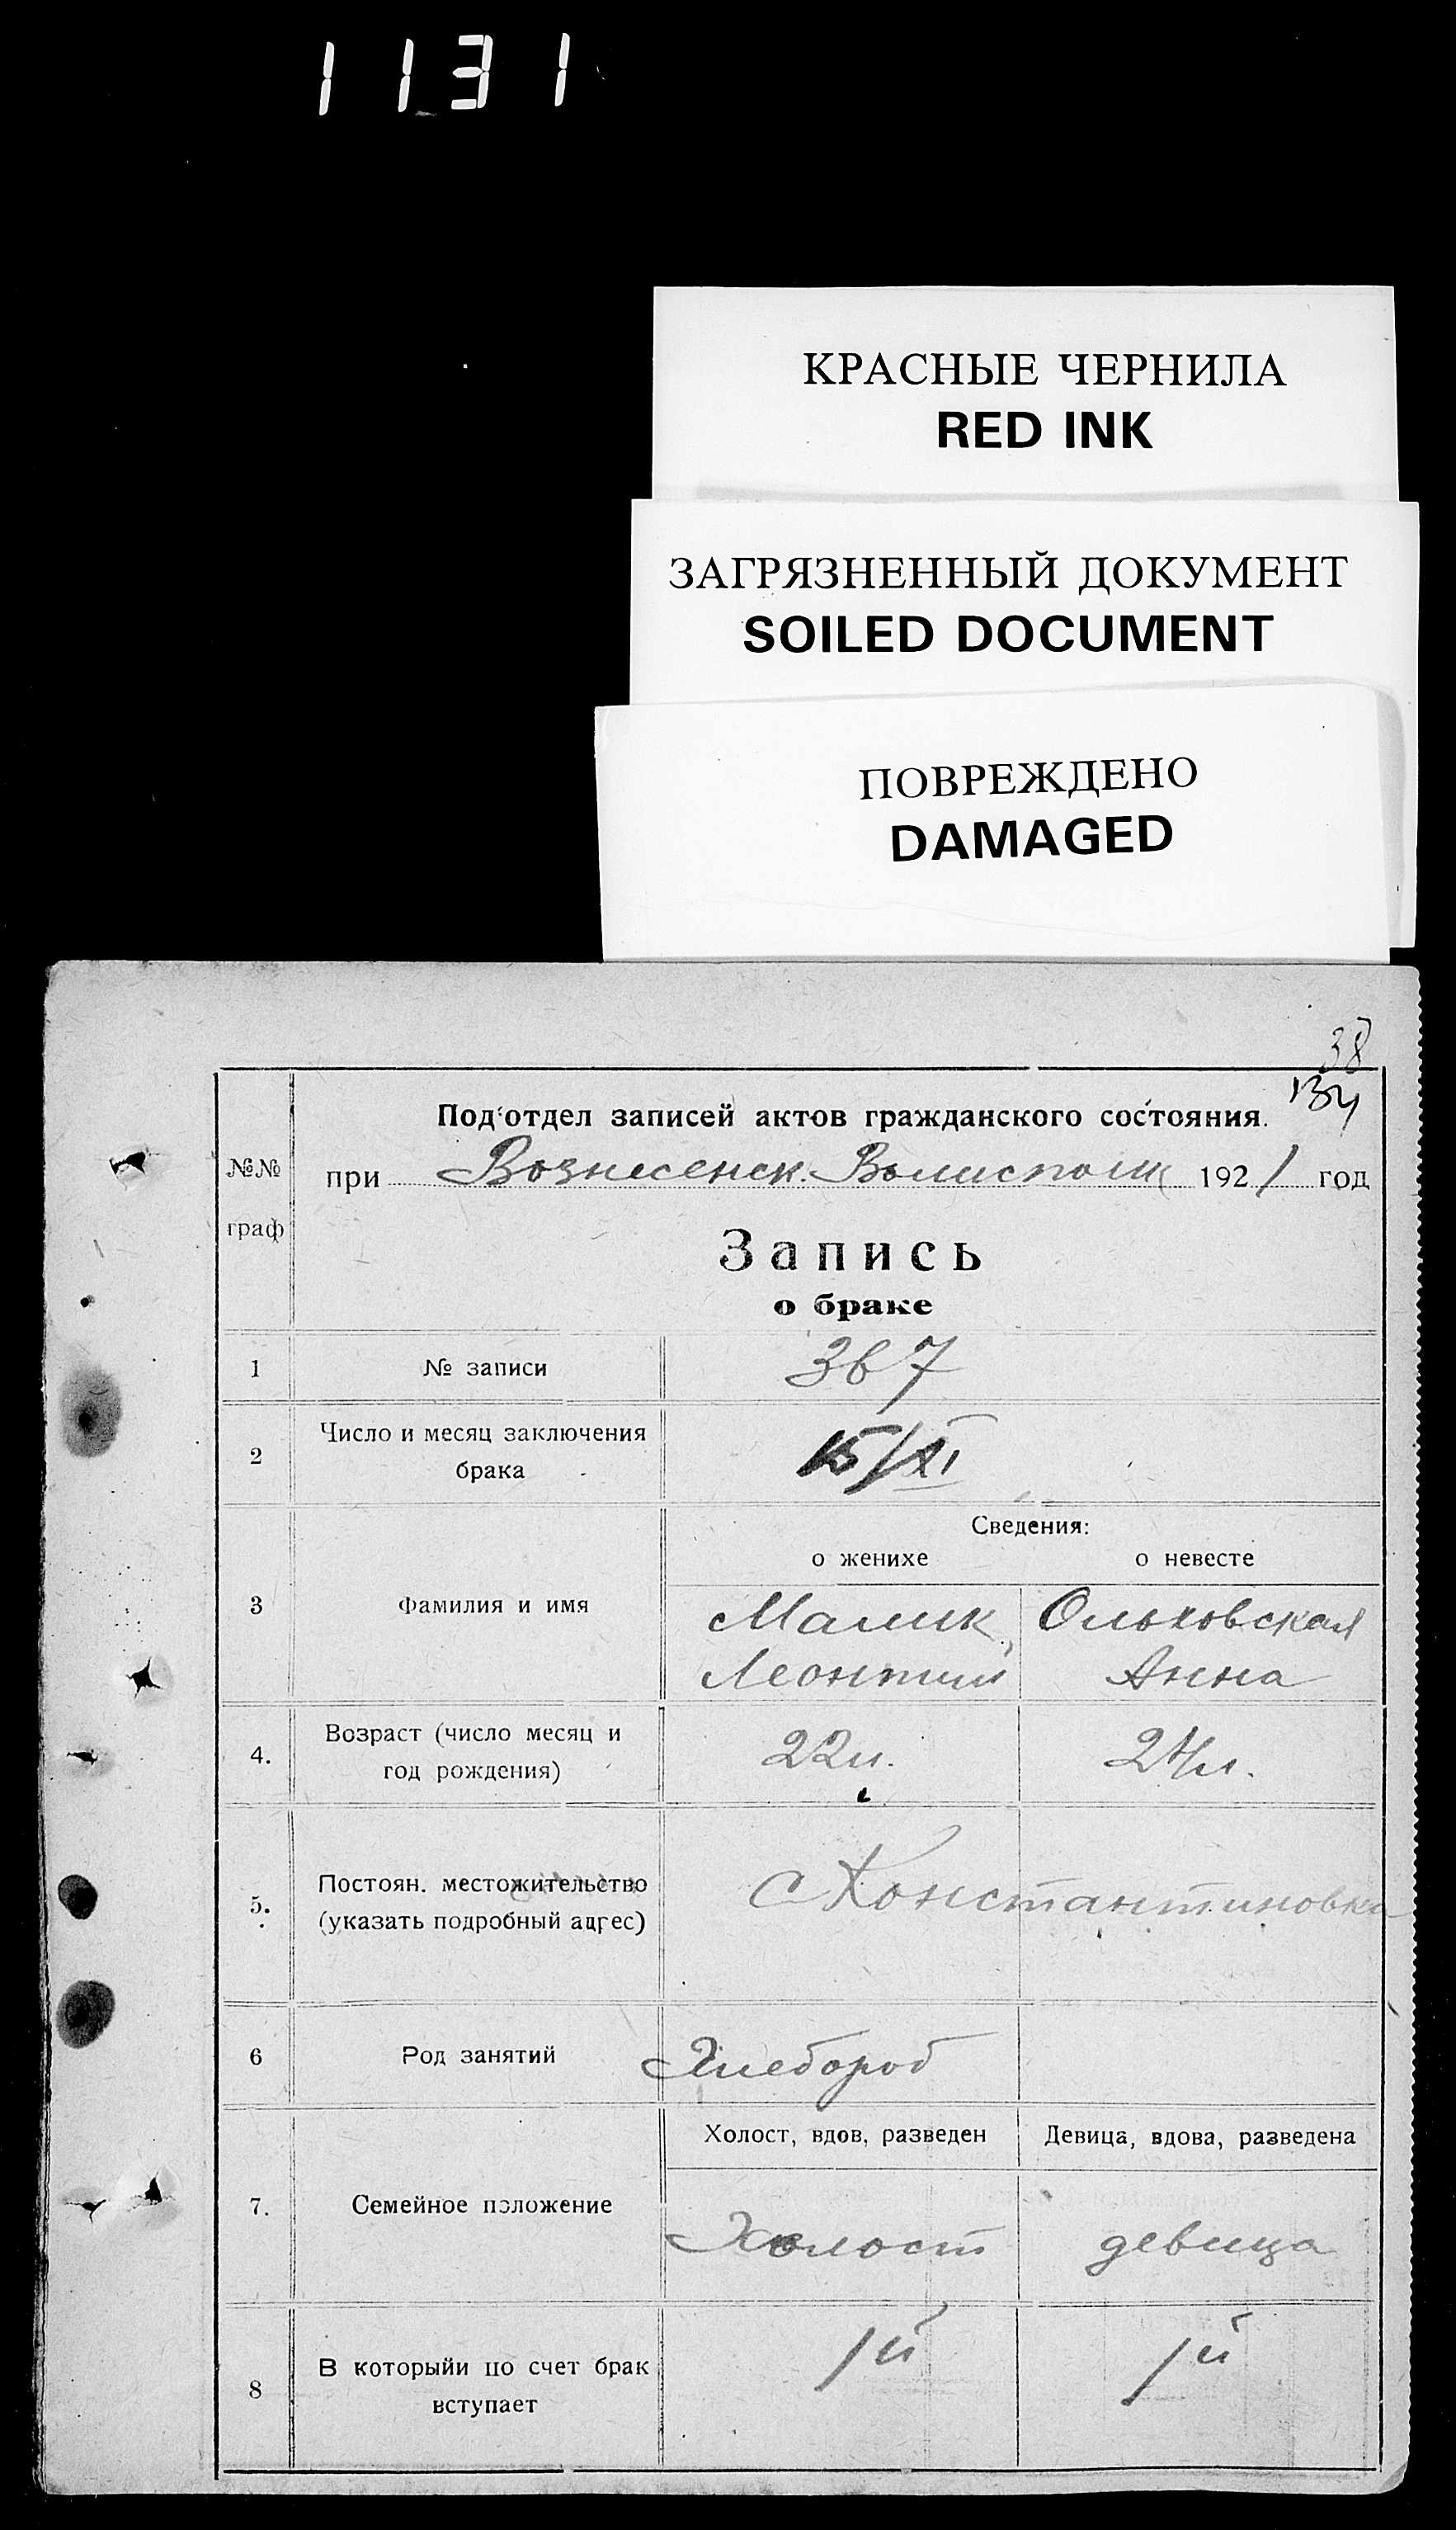 1131
КРАСНЫЕ ЧЕРНИЛА
RED INK
ЗАГРЯЗНЕННЫЙ ДОКУМЕНТ
SOILED DOCUMENT
ПОВРЕЖДЕНО
DAMAGED
38
134
Под‘отдел записей актов гражданского состояния.
№№ граф
при Вознесенск. Волисполк 1921 год
Запись
о браке
1 № записи 367
2 Число и месяц заключения
брака 15/XI
Сведения:
о женихе о невесте
3 Фамилия и имя Малик, Ольховская
Леонтий Анна
4. Возраст (число месяц и
год рождения) 22 л. 24 л.
5. Постоян. местожительство
(указать подробный адрес) с Константиновка
6 Род занятий Хлебороб
Холост, вдов, разведен Девица, вдова, разведена
7. Семейное положение Холост девица
8 В которыйи по счет брак
вступает 1й 1й